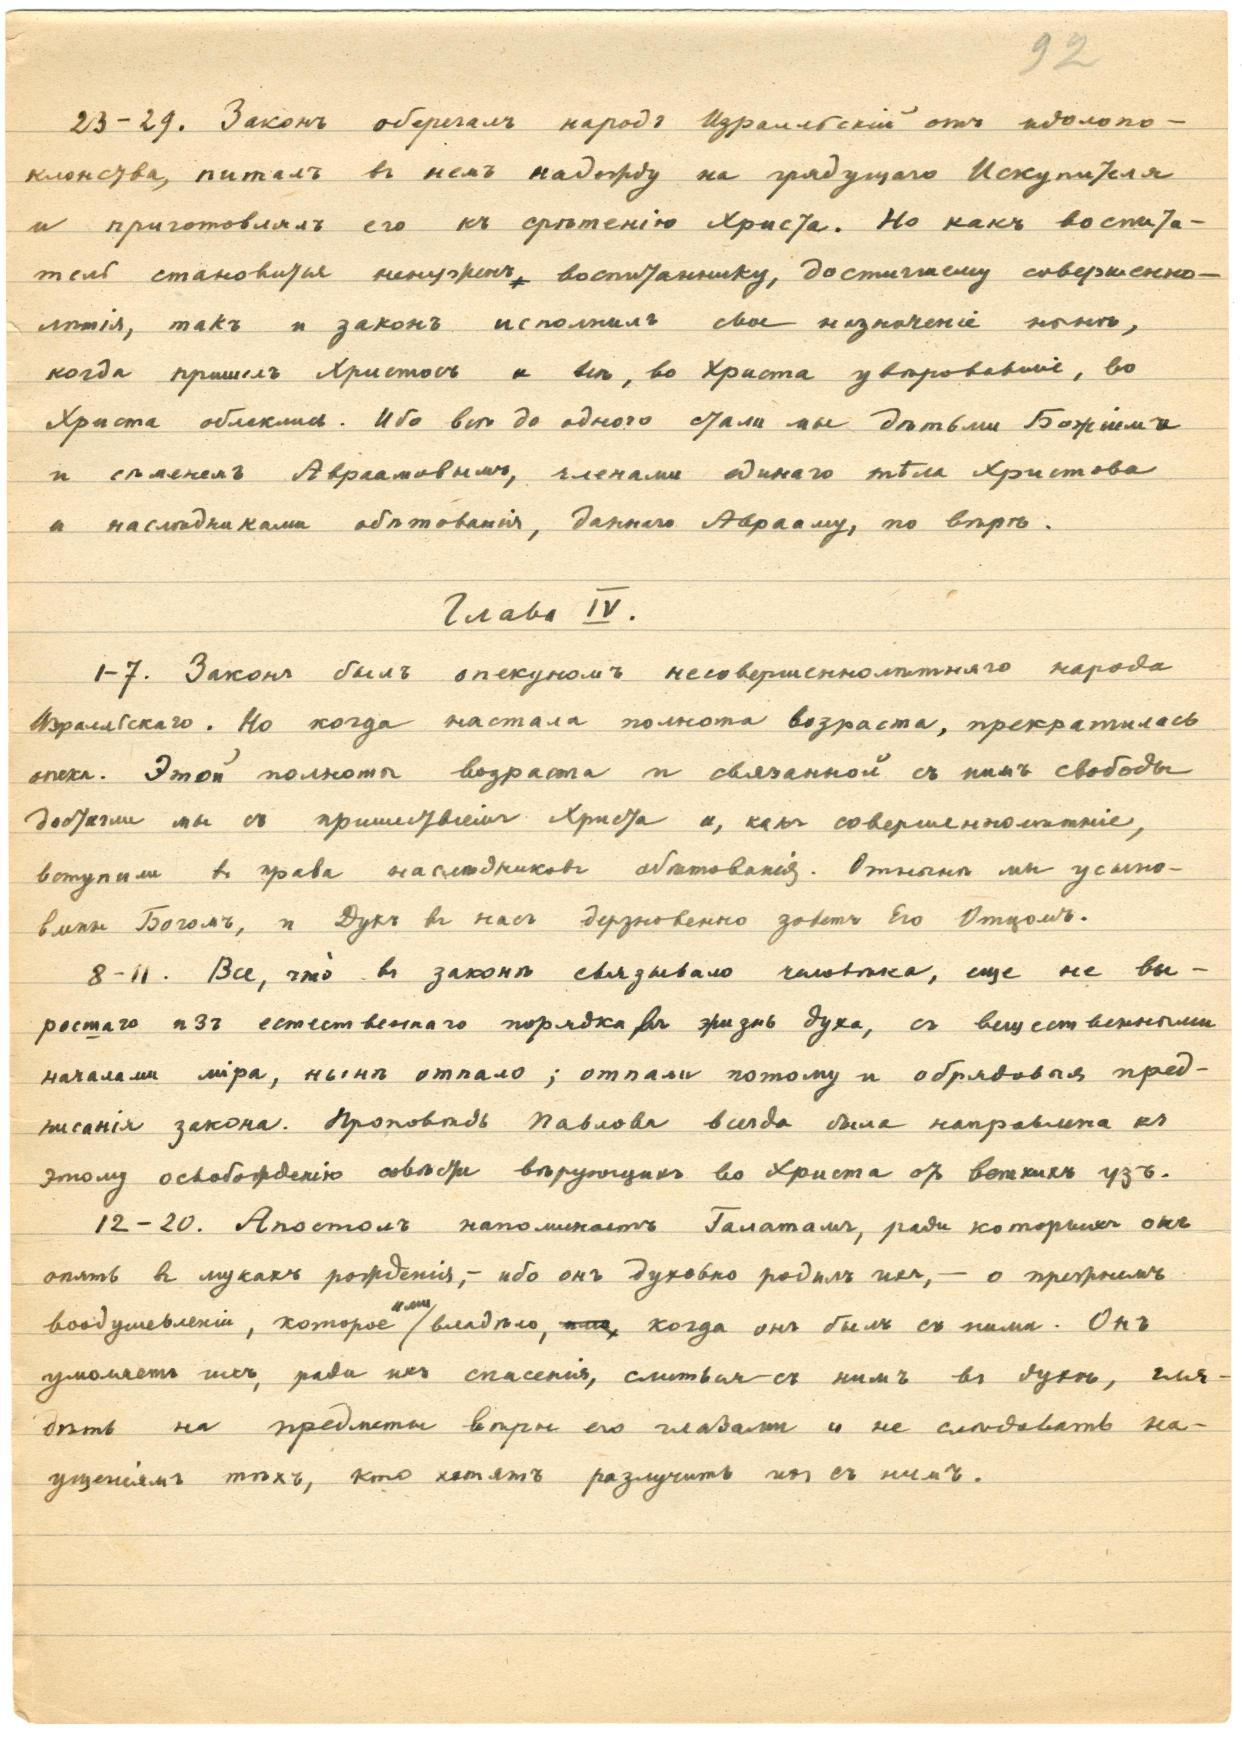 92
23–29. Законъ оберегалъ народъ Израильскій отъ идолопо-
клонства, питалъ въ немъ надежду на грядущаго Искупителя
и приготовлялъ его къ срѣтенію Христа. Но какъ воспита-
тель становится ненуженъ воспитаннику, достигшему совершенно-
лѣтія, такъ и законъ исполнилъ свое назначеніе нынѣ,
когда пришелъ Христосъ и всѣ, во Христа увѣровавшіе, во
Христа облеклись. Ибо всѣ до одного стали мы дѣтьми Божіими
и сѣменемъ Авраамовымъ, членами единаго тѣла Христова
и наслѣдниками обѣтованія, даннаго Аврааму, по вѣрѣ.
Глава IV.
1–7. Законъ былъ опекуномъ несовершеннолѣтняго народа
Израильскаго. Но когда настала полнота возраста, прекратилась
опека. Этой полноты возраста и связанной съ нимъ свободы
достигли мы съ пришествіемъ Христа и, какъ совершеннолѣтніе,
вступили въ права наслѣдниковъ обѣтованія. Отнынѣ мы усыно-
влены Богомъ, и Духъ въ насъ дерзновенно зоветъ Его Отцомъ.
8–11. Все, что̀ въ законѣ связывало человѣка, еще не вы-
росшаго изъ естественнаго порядка въ жизнь духа, съ вещественными
началами міра, нынѣ отпало; отпали потому и обрядовыя пред-
писанія закона. Проповѣдь Павлова всегда была направлена къ
этому освобожденію совѣсти вѣрующихъ во Христа отъ ветхихъ узъ.
12–20. Апостолъ напоминаетъ Галатамъ, ради которыхъ онъ
опять въ мукахъ рожденія, – ибо онъ духовно родилъ ихъ, – о прежнемъ
воодушевленіи, которое ими владѣло, когда онъ былъ съ ними. Онъ
умоляетъ ихъ, ради ихъ спасенія, слиться съ нимъ въ духѣ, гля-
дѣть на предметы вѣры его глазами и не слѣдовать на-
ущеніямъ тѣхъ, кто хотятъ разлучить ихъ съ нимъ.